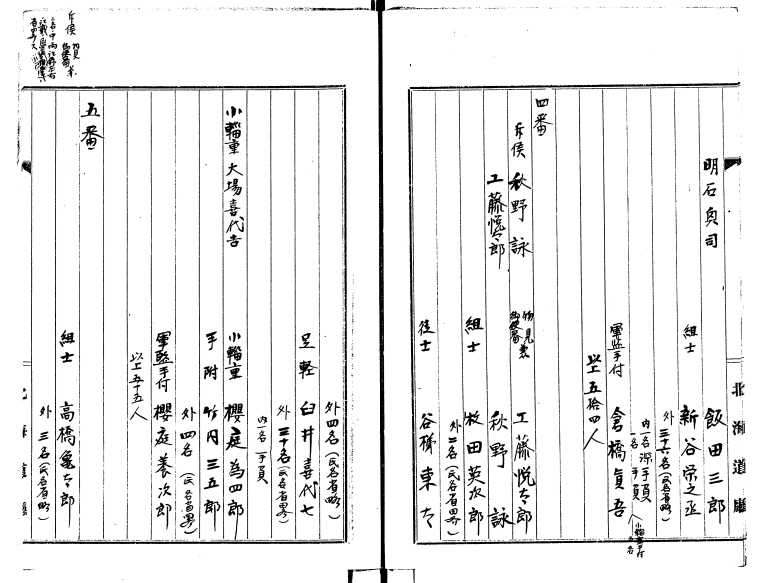 明石貞司
飯田三郎
組士 新谷栄之丞
外三十六名(氏名省略)
内一名深手負
一名手負
小輜重手付
軍監手付 倉橋貞吾
以上五拾四人
四番
斥侯 秋野詠
工藤悦太郎
物見兼
工藤悦太郎
秋野詠
組士 牧田英次郎
外二名(氏名省略)
徒士 谷梯東太
北海道廳
外四名(氏名省略)
足軽 臼井喜代七
外三十名(氏名省略)
内一名手負
小輜重 大場喜代吉
小輜重 櫻庭為四郎
手附 竹内三五郎
外四名(氏名省略)
軍監手付 櫻庭養次郎
以上五十五人
五番
組士 高橋亀太郎
外三名(氏名省略)
斥侯 物見兼